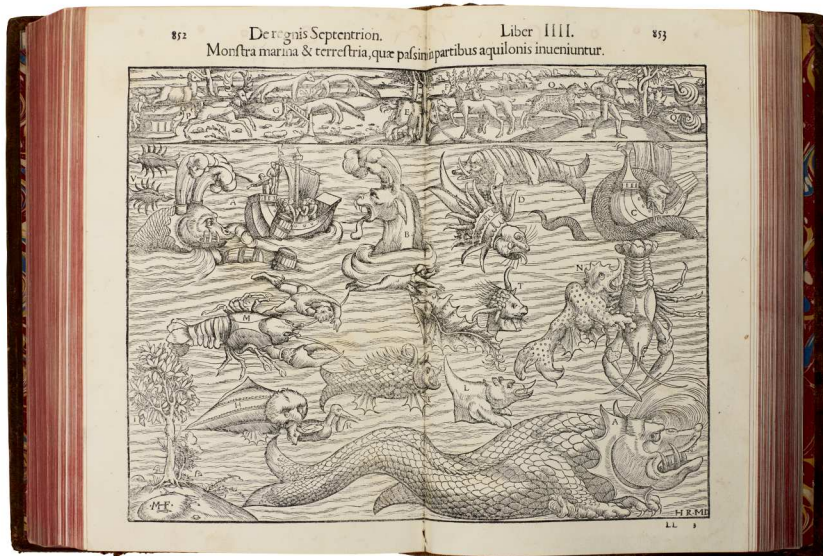 852 De regnis Septentrion. Liber IIII. 853
Monſtra marina & terreſtria, quæ paſsim in partibus aquilonis inueniuntur.
G
O
A
B
D
C
N
T
M
L
A
·M·F·
H R·MD
LL 3